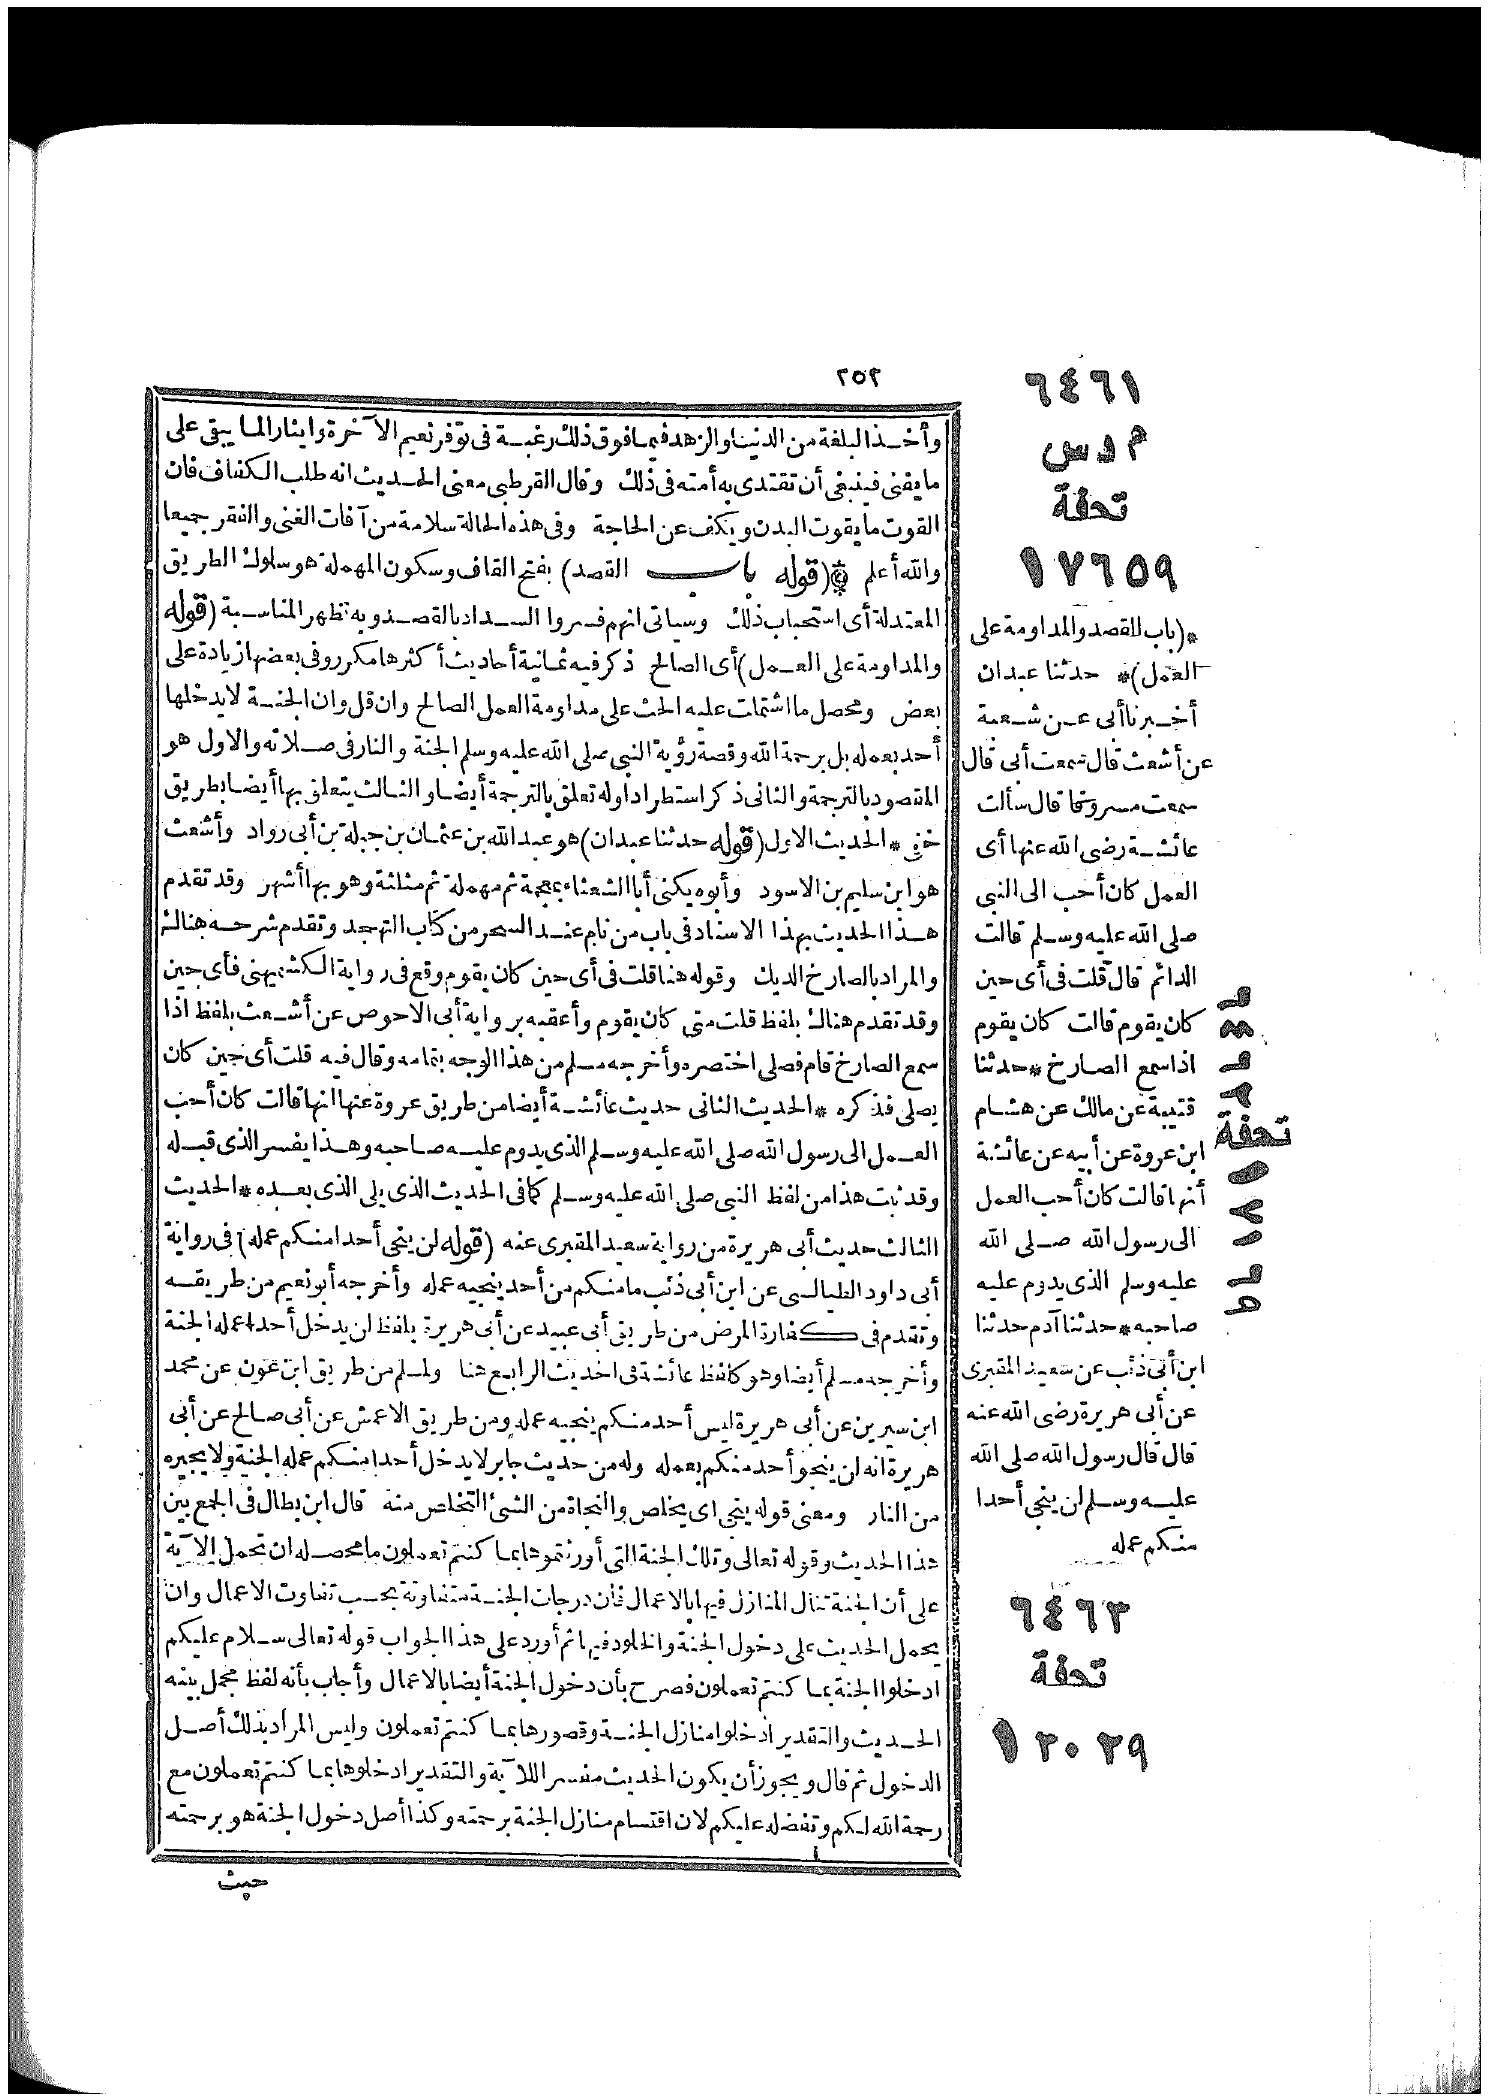 ٢٥٢
وأخذ البلغة من الدنيا والزهد فيما فوق ذلك رغبة في توفر نعيم الآخرة وايثار الما يبقى على
ما يفنى فينبغى أن تقتدى به أمته في ذلك وقال القرطبى معنى الحديث انه طلب الكفاف فان
القوت ما يقوت البدن ويكف عن الحاجة وفى هذه الحالة سلامة من آفات الغنى والفقر جميعا
والله أعلم (قوله باب القصد) بفتح القاف وسكون المهملة هو سلوك الطريق
المعتدلة أى استحباب ذلك وسيأتى انهم فسروا السداد بالقصد وبه تظهر المناسبة (قوله
والمداومة على العمل) أى الصالح ذكر فيه ثمانية أحاديث أكثرها مكرر وفى بعضها زيادة على
بعض ومحصل ما اشتملت عليه الحث على مداومة العمل الصالح وان قل وان الجنة لا يدخلها
أحد بعمله بل برحمة الله وقصة رؤية النبى صلى الله عليه وسلم الجنة والنار فى صلاته والاول هو
المقصود بالترجمة والثانى ذكر استطرادا وله تعلق بالترجمة أيضا والثالث يتعلق بها أيضا بطريق
خفى * الحديث الاول (قوله حدثنا عبدان) هو عبد الله بن عثمان بن جبلة بن أبى رواد وأشعث
هو ابن سليم بن الاسود وأبوه يكنى أبا الشعثاء بمعجمة ثم مهملة ثم مثلثة وهو بها أشهر وقد تقدم
هذا الحديث بهذا الاسناد فى باب من نام عند السحر من كتاب التهجد وتقدم شرحه هناك
والمراد بالصارخ الديك وقوله هنا قلت فى أى حين كان يقوم وقع فى رواية الكشميهنى فأى حين
وقد تقدم هناك بلفظ قلت متى كان يقوم وأعقبه برواية أبى الاحوص عن أشعث بلفظ اذا
سمع الصارخ قام فصلى اختصره وأخرجه مسلم من هذا الوجه بتمامه وقال فيه قلت أى حين كان
يصلى فذكره * الحديث الثانى حديث عائشة أيضا من طريق عروة عنها انها قالت كان أحب
العمل الى رسول الله صلى الله عليه وسلم الذى يدوم عليه صاحبه وهذا يفسر الذى قبله
وقد ثبت هذا من لفظ النبى صلى الله عليه وسلم كما فى الحديث الذى يلى الذى بعده * الحديث
الثالث حديث أبى هريرة من رواية سعيد المقبرى عنه (قوله لن ينجى أحدا منكم عمله) فى رواية
أبى داود الطيالسى عن ابن أبى ذئب ما منكم من أحد ينجيه عمله وأخرجه أبو نعيم من طريقه
وتقدم فى كفارة المرض من طريق أبى عبيد عن أبى هريرة بلفظ لن يدخل أحدا عمله الجنة
وأخرجه مسلم أيضا وهو كلفظ عائشة فى الحديث الرابع هنا ولمسلم من طريق ابن عون عن محمد
ابن سيرين عن أبى هريرة ليس أحد منكم ينجيه عمله ومن طريق الاعمش عن أبى صالح عن أبى
هريرة انه لن ينجو أحد منكم بعمله وله من حديث جابر لا يدخل أحدا منكم عمله الجنة ولا يجيره
من النار ومعنى قوله ينجى اى يخلص والنجاة من الشئ التخلص منه قال ابن بطال فى الجمع بين
هذا الحديث وقوله تعالى وتلك الجنة التى أورثتموها بما كنتم تعملون ما محصله ان تحمل الآية
على أن الجنة تنال المنازل فيها بالاعمال فان درجات الجنة متفاوتة بحسب تفاوت الاعمال وان
يحمل الحديث على دخول الجنة والخلود فيها ثم أورد على هذا الجواب قوله تعالى سلام عليكم
ادخلوا الجنة بما كنتم تعملون فصرح بأن دخول الجنة أيضا بالاعمال وأجاب بأنه لفظ مجمل بينه
الحديث والتقدير ادخلوا منازل الجنة وقصورها بما كنتم تعملون وليس المراد بذلك أصل
الدخول ثم قال ويجوز أن يكون الحديث مفسرا للآية والتقدير ادخلوها بما كنتم تعملون مع
رحمة الله لكم وتفضله عليكم لان اقتسام منازل الجنة برحمته وكذا أصل دخول الجنة هو برحمته
حيث
٦٤٦١
م د س
تحفة
١٧٦٥٩
*(باب القصد والمداومة على
العمل)* حدثنا عبدان
أخبرنا أبى عن شعبة
عن أشعث قال سمعت أبى قال
سمعت مسروقا قال سألت
عائشة رضى الله عنها أى
العمل كان أحب الى النبى
صلى الله عليه وسلم قالت
الدائم قال قلت فى أى حين
كان يقوم قالت كان يقوم
اذا سمع الصارخ * حدثنا
قتيبة عن مالك عن هشام
ابن عروة عن أبيه عن عائشة
أنها قالت كان أحب العمل
الى رسول الله صلى الله
عليه وسلم الذى يدوم عليه
صاحبه * حدثنا آدم حدثنا
ابن أبى ذئب عن سعيد المقبرى
عن أبى هريرة رضى الله عنه
قال قال رسول الله صلى الله
عليه وسلم لن ينجى أحدا
منكم عمله
٦٤٦٢
تحفة
١٧١٦٩
٦٤٦٣
تحفة
١٣٠٢٩